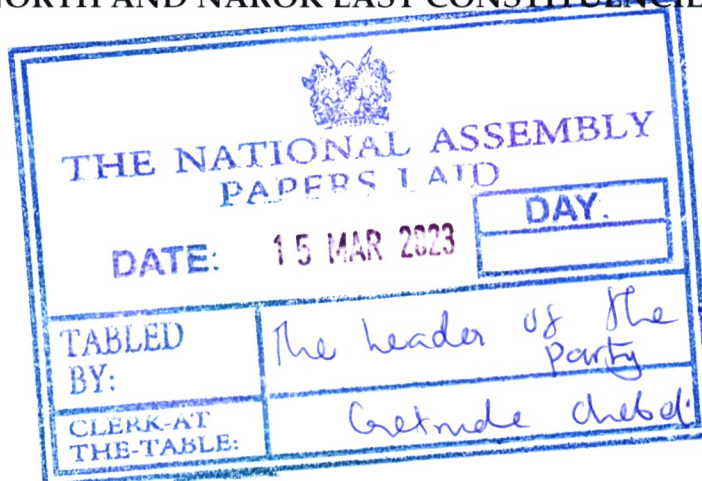 NORTH AND NAROK EAST CONSTITUENCIE
THE NATIONAL ASSEMBLY
PAPERS LAID
DATE: 15 MAR 2023
DAY.
TABLED BY: The Leader of the Party
CLERK-AT THE-TABLE: Gertrude